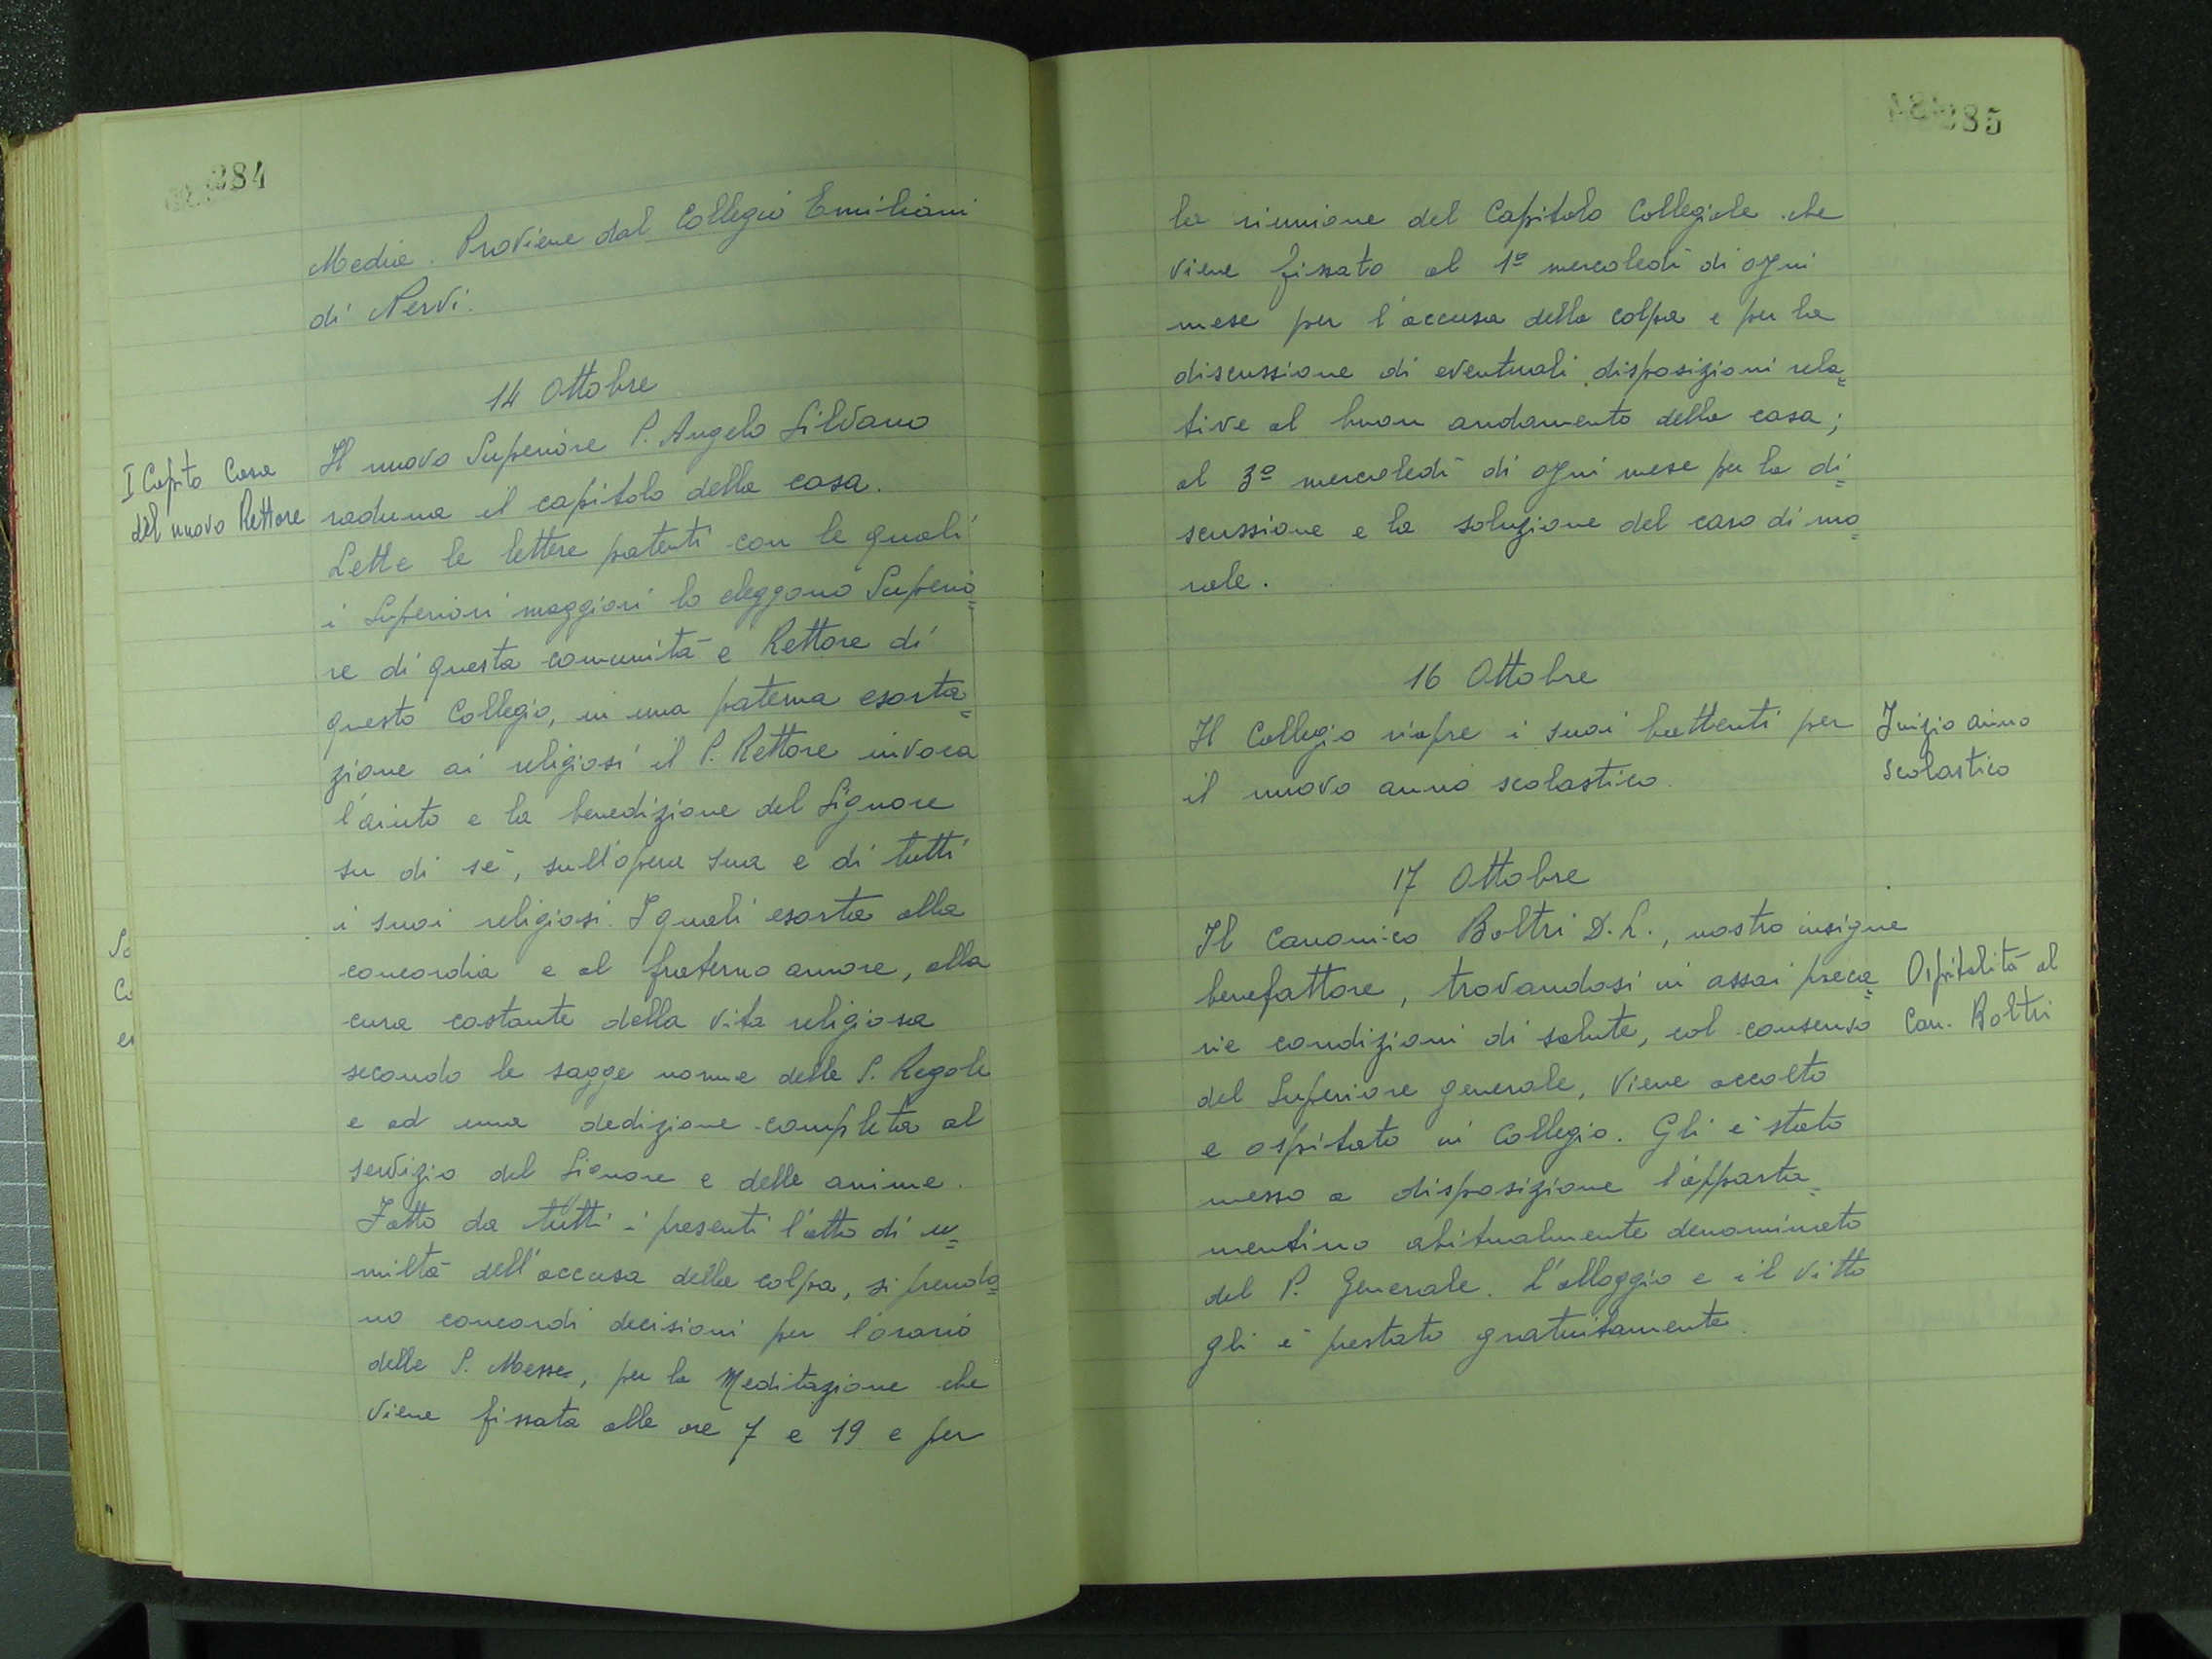 284
Media. Proviene dal Collegio Emiliani
di Nervi.
14 Ottobre
I Capito Casa
del nuovo Rettore
Il nuovo Superiore P. Angelo Silvano
raduna il capitolo della casa.
Lette le lettere patenti con le quali
i Superiori maggiori lo eleggono Superio=
re di questa comunità e Rettore di
questo Collegio, in una paterna esorta=
zione ai religiosi il P. Rettore invoca
l'aiuto e la benedizione del Signore
su di sé, sull'opera sua e di tutti
i suoi religiosi. I quali esorta alla
concordia e al fraterno amore, alla
cura costante della vita religiosa
secondo le sagge norme delle S. Regole
e ad una dedizione completa al
servizio del Signore e delle anime.
Fatto da tutti i presenti l'atto di u=
miltà dell'accusa della colpa, si prendo=
no concordi decisioni per l'orario
delle S. Messe, per la Meditazione che
viene fissata alle ore 7 e 19 e per
285
la riunione del Capitolo Collegiale che
viene fissato al 1º mercoledì di ogni
mese per l'accusa della colpa e per la
discussione di eventuali disposizioni rela=
tive al buon andamento della casa;
al 3º mercoledì di ogni mese per la di=
scussione e la soluzione del caso di mo=
rale.
16 Ottobre
Il Collegio riapre i suoi battenti per
il nuovo anno scolastico.
Inizio anno
scolastico
17 Ottobre
Il Canonico Boltri D. L., nostro insigne
benefattore, trovandosi in assai preca=
rie condizioni di salute, col consenso
del Superiore generale, viene accolto
e ospitato in Collegio. Gli è stato
messo a disposizione l'apparta=
mentino abitualmente denominato
del P. Generale. L'alloggio e il vitto
gli è prestato gratuitamente.
Ospitalità al
Can. Boltri